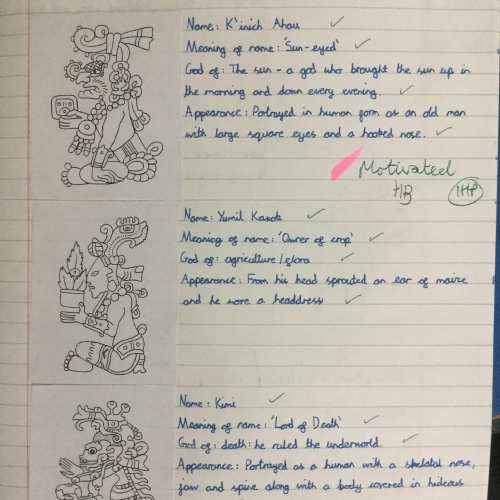 Name: K'inich Ahau
Meaning of name: 'Sun-eyed'
God of: The sun - a god who brought the sun up in
the morning and down every evening.
Appearance: Portrayed in human form as an old man
with large square eyes and a hooked nose.
Motivated
HB
1HP
Name: Yumil Kaxob
Meaning of name: 'Owner of crop'
God of: agriculture/flora
Appearance: From his head sprouted an ear of maize
and he wore a headdress
Name: Kimi
Meaning of name: 'Lord of Death'
God of: death: he ruled the underworld.
Appearance: Portrayed as a human with a skeletal nose,
jaw and spine along with a body covered in hideous